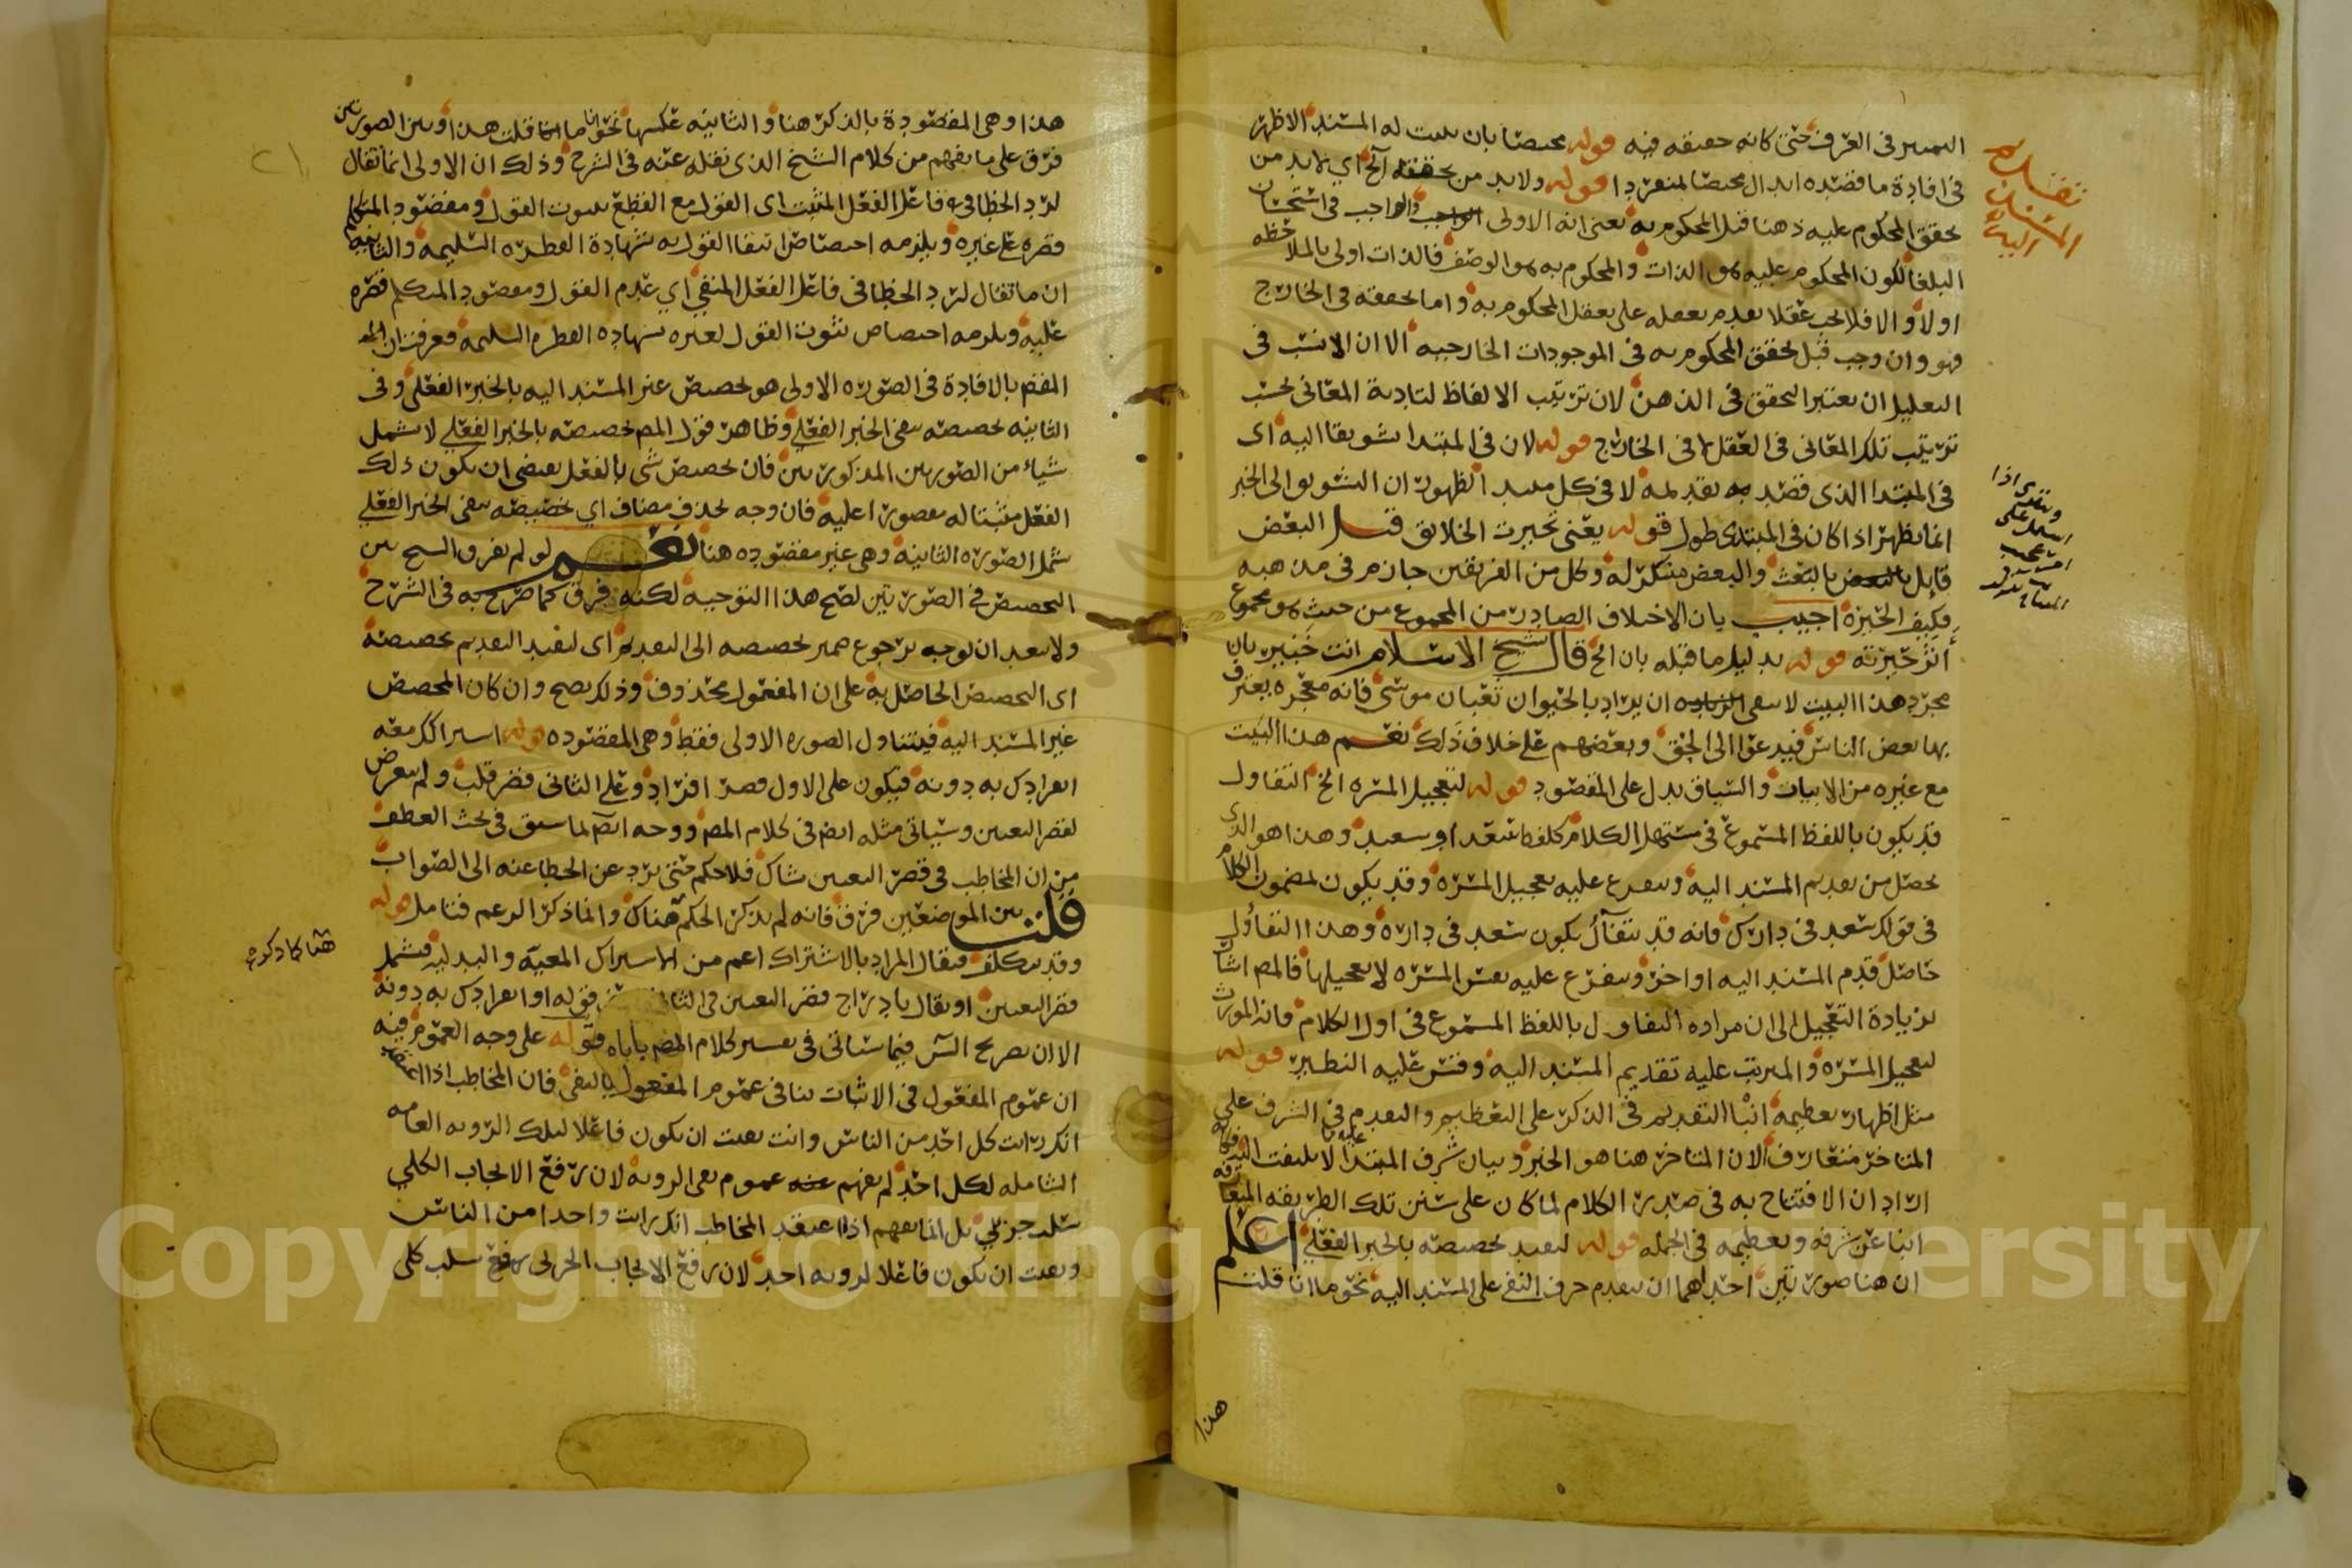 التمييز في العرف حتى كانه حقيقه فيه قوله مختصا بان يثبت له المسند الاظهر
في افادة ما قصده ابدال مختصا بمنفردا قوله ولا بد من تحققه الخ اي لا بد من
تحقق المحكوم عليه ذهنا قبل المحكوم به يعنى انه الاولى والواجب في استحسان
البلغا لكون المحكوم عليه هو الذات والمحكوم به هو الوصف فالذات اولى بالملاحظه
اولا والا فلا يجب عقلا تقدم تعقله على تعقل المحكوم به واما تحققه في الخارج
فهو وان وجب قبل تحقق المحكوم به في الموجودات الخارجيه الا ان الانسب في
التعليل ان يعتبر التحقق في الذهن لان ترتيب الالفاظ لتادية المعاني بحسب
ترتيب تلك المعاني في العقل لا في الخارج قوله لان في المبتدا تشويقا اليه اي
في المبتدا الذي قصد به تقديمه لا في كل مبتدا لظهور ان التشويق الى الخبر
انما يظهر اذا كان في المبتدى طول قوله يعني تحيرت الخلايق قيل البعض
قايل بالبعث والبعض منكر له وكل من الفريقين جازم في مذهبه
فكيف الحيرة اجيب بان الاختلاف الصادر من المجموع من حيث هو مجموع
اثر حيرته قوله بدليل ما قبله بان الخ قال شيخ الاسلام انت خبير بان
مجرد هذا البيت لا ينفى ان يراد بالحيوان ثعبان موسى فانه معجزه يعترف
بها بعض الناس فيدعوا الى الحق وبعضهم على خلاف ذلك نعم هذا البيت
مع غيره من الابيات والسياق يدل على المقصود قوله لتعجيل المسره الخ التفاول
قد يكون باللفظ المسموع في مستهل الكلام كلفظ سعد او سعيد وهذا هو الذي
يحصل من تقديم المسند اليه ويتفرع عليه تعجيل المسره وقد يكون لمضمون الكلام
في قولك سعد في دارك فانه قد يتفآل بكون سعد في داره وهذا التفاؤل
حاصل قدم المسند اليه او اخر ويتفرع عليه نفس المسره لا تعجيلها فالمص اشار
بزيادة التعجيل الى ان مراده التفاول باللفظ المسموع في اول الكلام فانه المورث
لتعجيل المسره والمترتب عليه تقديم المسند اليه وقس عليه التطير قوله
مثل اظهار تعظيمه انبا التقديم في الذكر على التعظيم والتقدم في الشرف على
المتاخر متعارف الا ان المتاخر هنا هو الخبر وبيان شرف المبتدا عليه لا يلتفت اليه فكانه
اراد ان الافتتاح به في صدر الكلام لما كان على سنن تلك الطريقه المتعارفه
انبا عن شرفه وتعظيمه في الجمله قوله ليفيد تخصيصه بالخبر الفعلي اعلم
ان هنا صورتين احداهما ان يتقدم حرف النفي على المسند اليه نحو ما انا قلت
هذا
تقديم
المسند
اليه
هذا وهي المقصودة بالذكر هنا والثانيه عكسها نحو انا ما قلت هذا وبين الصورتين
فرق على ما يفهم من كلام الشيخ الذي نقله عنه في الشرح وذلك ان الاولى انما تقال
لرد الخطا في فاعل الفعل المثبت اي القول مع القطع بثبوت القول ومقصود المتكلم
قصره على غيره ويلزمه اختصاص انتفا القول به بشهادة الفطره السليمه والثانيه
ان ما تقال لرد الخطا في فاعل الفعل المنفي اي عدم القول ومقصود المتكلم قصره
عليه ويلزمه اختصاص ثبوت القول لغيره بشهاده الفطره السليمه فعرفت ان
بالافادة في الصوره الاولى هو تخصيص غير المسند اليه بالخبر الفعلى وفى
الثانيه تخصيصه بنفى الخبر الفعلي وظاهر قول المص تخصيصه بالخبر الفعلي لا يشمل
شياء من الصورتين المذكورتين فان تخصيص شى بالفعل يقتضى ان يكون ذلك
الفعل مثبتا له مقصورا عليه فان وجه بحذف مضاف اي تخصيصه بنفى الخبر الفعلي
شمل الصوره الثانيه وهى غير مقصوده هنا نعم لو لم يفرق الشيخ بين
التخصيص في الصورتين لصح هذا التوجيه لكنه فرق كما صرح به في الشرح
ولا يبعد ان يوجه برجوع ضمير تخصيصه الى التقديم اى ليفيد التقديم تخصيصه
اى التخصيص الحاصل به على ان المفعول محذوف وذلك يصح وان كان المخصص
غير المسند اليه فيتناول الصوره الاولى فقط وهى المقصوده قوله اشتراك معه
انفرادك به دونه فيكون على الاول قصر افراد وعلى الثانى قصر قلب ولم يتعرض
لقصر التعيين وسياتى مثله ايضا فى كلام المص ووجه ايضا ما سبق فى بحث العطف
من ان المخاطب فى قصر التعيين شاك فلا حكم حتى يرد عن الخطا عنه الى الصواب
قلت بين الموضعين فرق فانه لم يذكر الحكم هناك وانما ذكر الزعم فتامل قوله
وقد يتكلف فيقال المراد بالاشتراك اعم من الاشتراك المعيه والبدليه فيشمل
قصر التعيين او يقال بادراج قصر التعيين في قوله او انفرادك به دونه
الا ان تصريح الش فيما سياتى فى تفسير كلام المص ياباه قوله على وجه العموم فيه
ان عموم المفعول فى الاثبات ينافى عموم المفعول بالنفى فان المخاطب اذا اعتقد
انك رايت كل احد من الناس وانت نفيت ان تكون فاعلا لتلك الرويه العامه
الشامله لكل احد لم يفهم عموم نفى الرويه لان رفع الايجاب الكلي
سلب جزيي بل انما يفهم اذا اعتقد المخاطب انك رايت واحدا من الناس
ونفيت ان تكون فاعلا لرويه احد لان رفع الايجاب الجزيى سلب كلى
هنا كما ذكره
Copyright © King Saud University